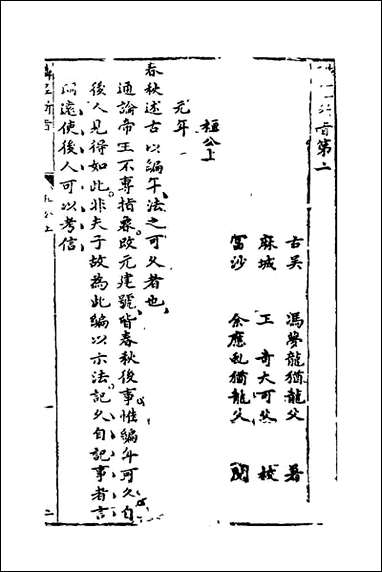 第二
古吳 馮夢龍猶龍父 著
麻城 王奇大可父 校
富沙 余應虬猶龍父 閱
桓公上
元年
春秋述古以編年法之可久者也
通論帝王不專指改元建號皆春秋後事惟編年可久自
後人見得如此非夫子故為此編以示法記久自記事者言
遠使後人可以考信
公上 一 二